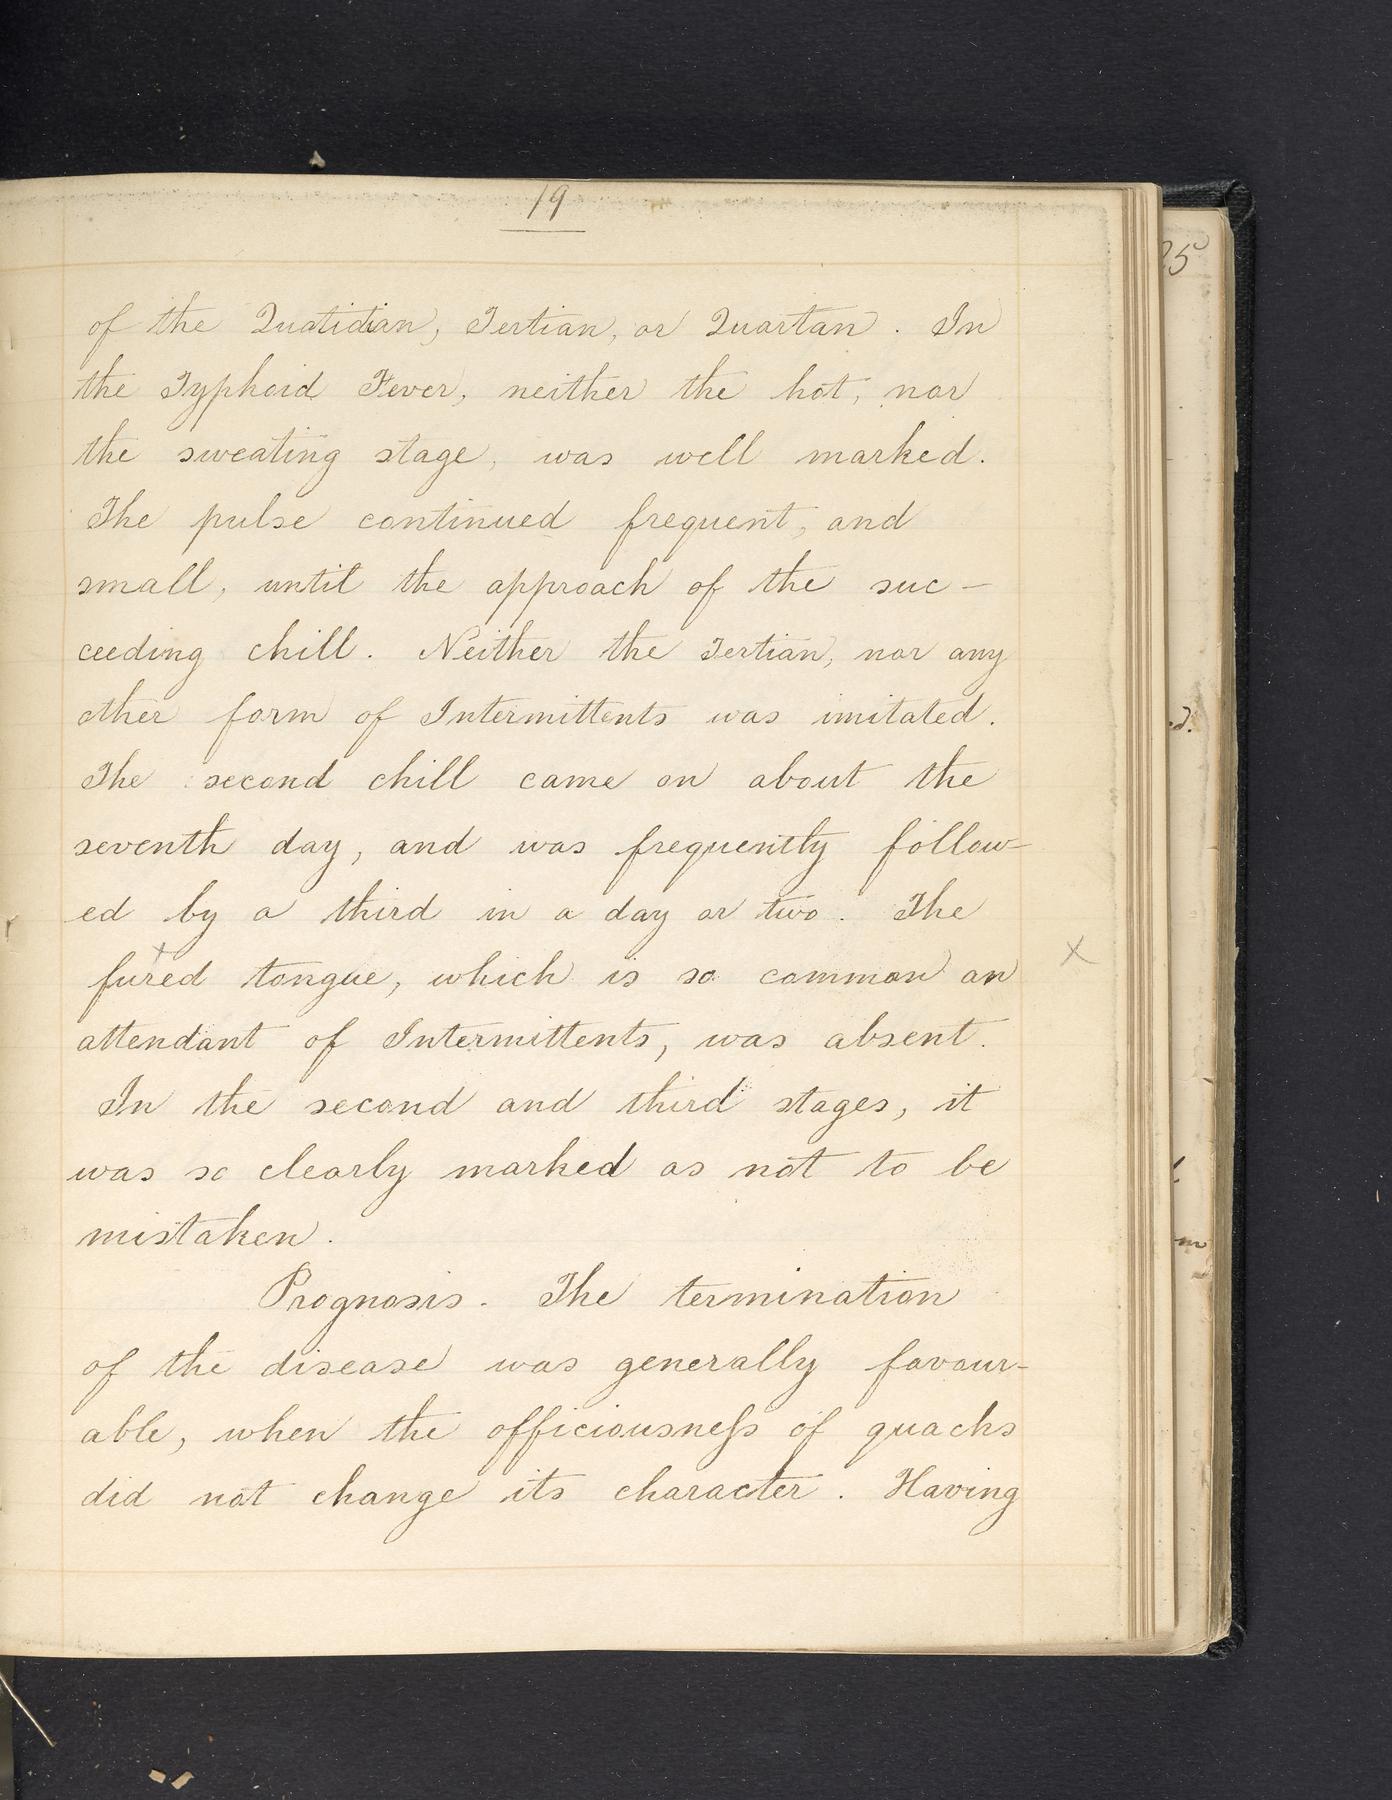 19
25
of the Quatidian, Tertian, or Quartan. In
the Typhoid Fever, neither the hot, nor
the sweating stage, was well marked.
The pulse continued frequent, and
small, until the approach of the suc-
ceeding chill. Neither the Tertian, nor any
other form of Intermittents was imitated.
The second chill came on about the
seventh day, and was frequently follow-
ed by a third in a day or two. The
x
fured tongue, which is so common an x
attendant of Intermittents, was absent.
In the second and third stages, it
was so clearly marked as not to be
mistaken.
Prognosis. The termination
of the disease was generally favour-
able, when the officiousneſs of quacks
did not change its character. Having